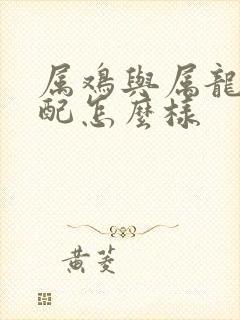 属鸡與属龍
配怎麼樣
黄菱